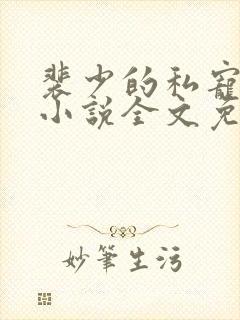 裴少的私寵
小說全文免
妙筆生污